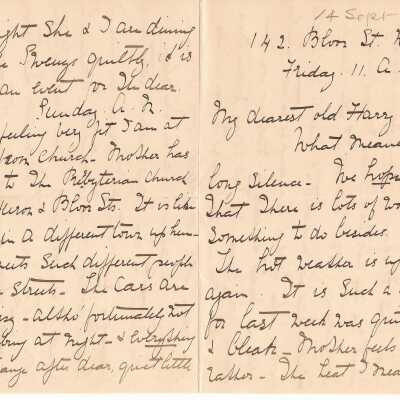 ght She & I are dining
e Swenys quietly, it is
an event for the dear.
Sunday A.M.
feeling very fit I am at
Church - Mother has
to the Presbyterian Church
Huron & Bloor Sts. It is like
in a different town up here
such different people
Streets - The Cars are
altho' fortunately not
at night - & everything
ange after dear, quiet little
14 Sept
142. Bloor St.
Friday. 11. A.
My dearest old Harry
What means
long silence - We hope
that there is lots of wo
Something to do besides.
The hot weather is up
again. It is such a
for last week was quit
& bleak - Mother feels
rather - The heat I mea